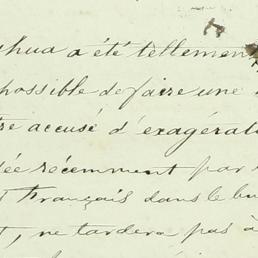 hua a été tellemen
possible de faire une
re accusé d'exagérati
ée récemment par
t Français dans le bu
t, ne tardera pas à